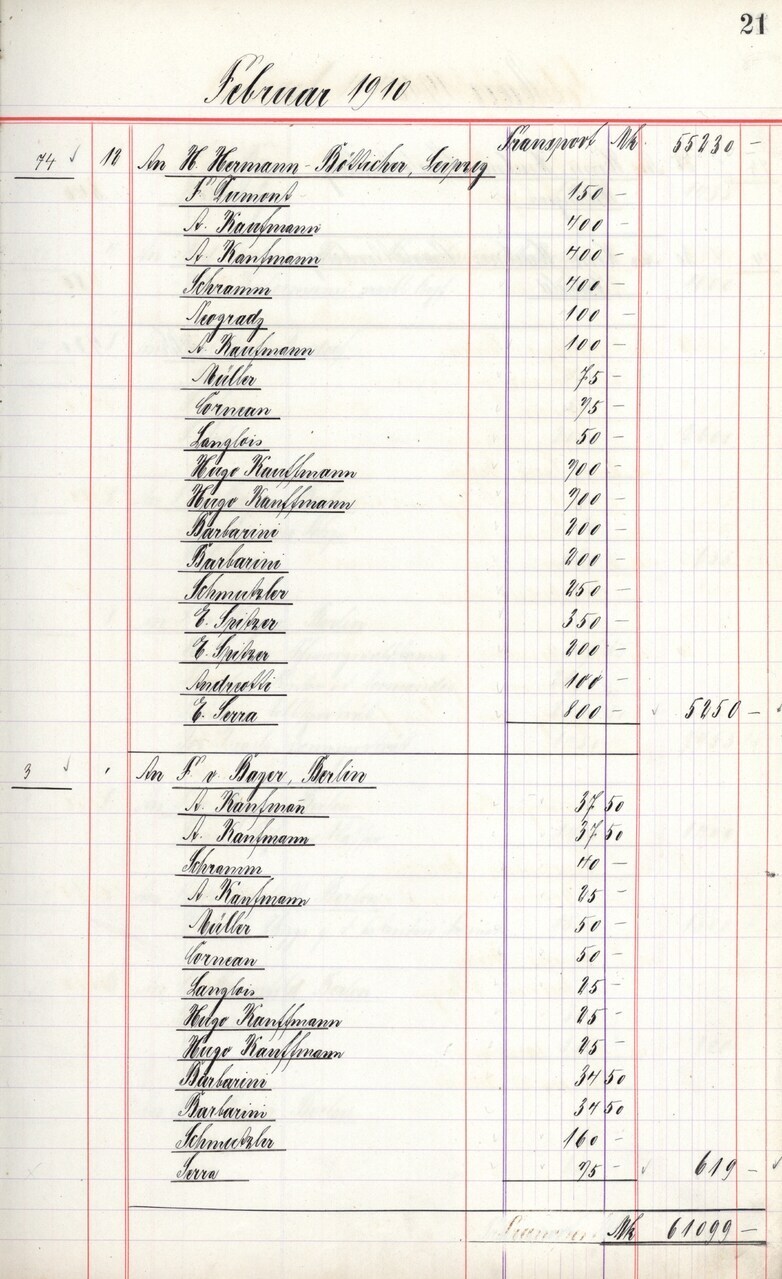 21
Februar 1910
Transport Mk. 55230 —
74 12 An H. Hermann-Bötticher, Leipzig
F. Dumont 150 —
A. Kaufmann 400 —
A. Kaufmann 400 —
Schramm 400 —
Neogrady 100 —
A. Kaufmann 100 —
Müller 75 —
Cornean 75 —
Langlois 50 —
Hugo Kauffmann 700 —
Hugo Kauffmann 700 —
Barbarini 200 —
Barbarini 200 —
Schmutzler 250 —
E. Spitzer 350 —
E. Spitzer 200 —
Andreotti 100 —
E. Serra 800 — 5250 —
3 " An F. v. Bayer, Berlin
A. Kaufman̄ 37 50
A. Kaufmann 37 50
Schramm 40 —
A. Kaufmann 25 —
Müller 50 —
Cornean 50 —
Langlois 25 —
Hugo Kauffmann 25 —
Hugo Kauffmann 25 —
Barbarini 34 50
Barbarini 34 50
Schmutzler 160 —
Serra 75 — 619 —
Mk 61099 —